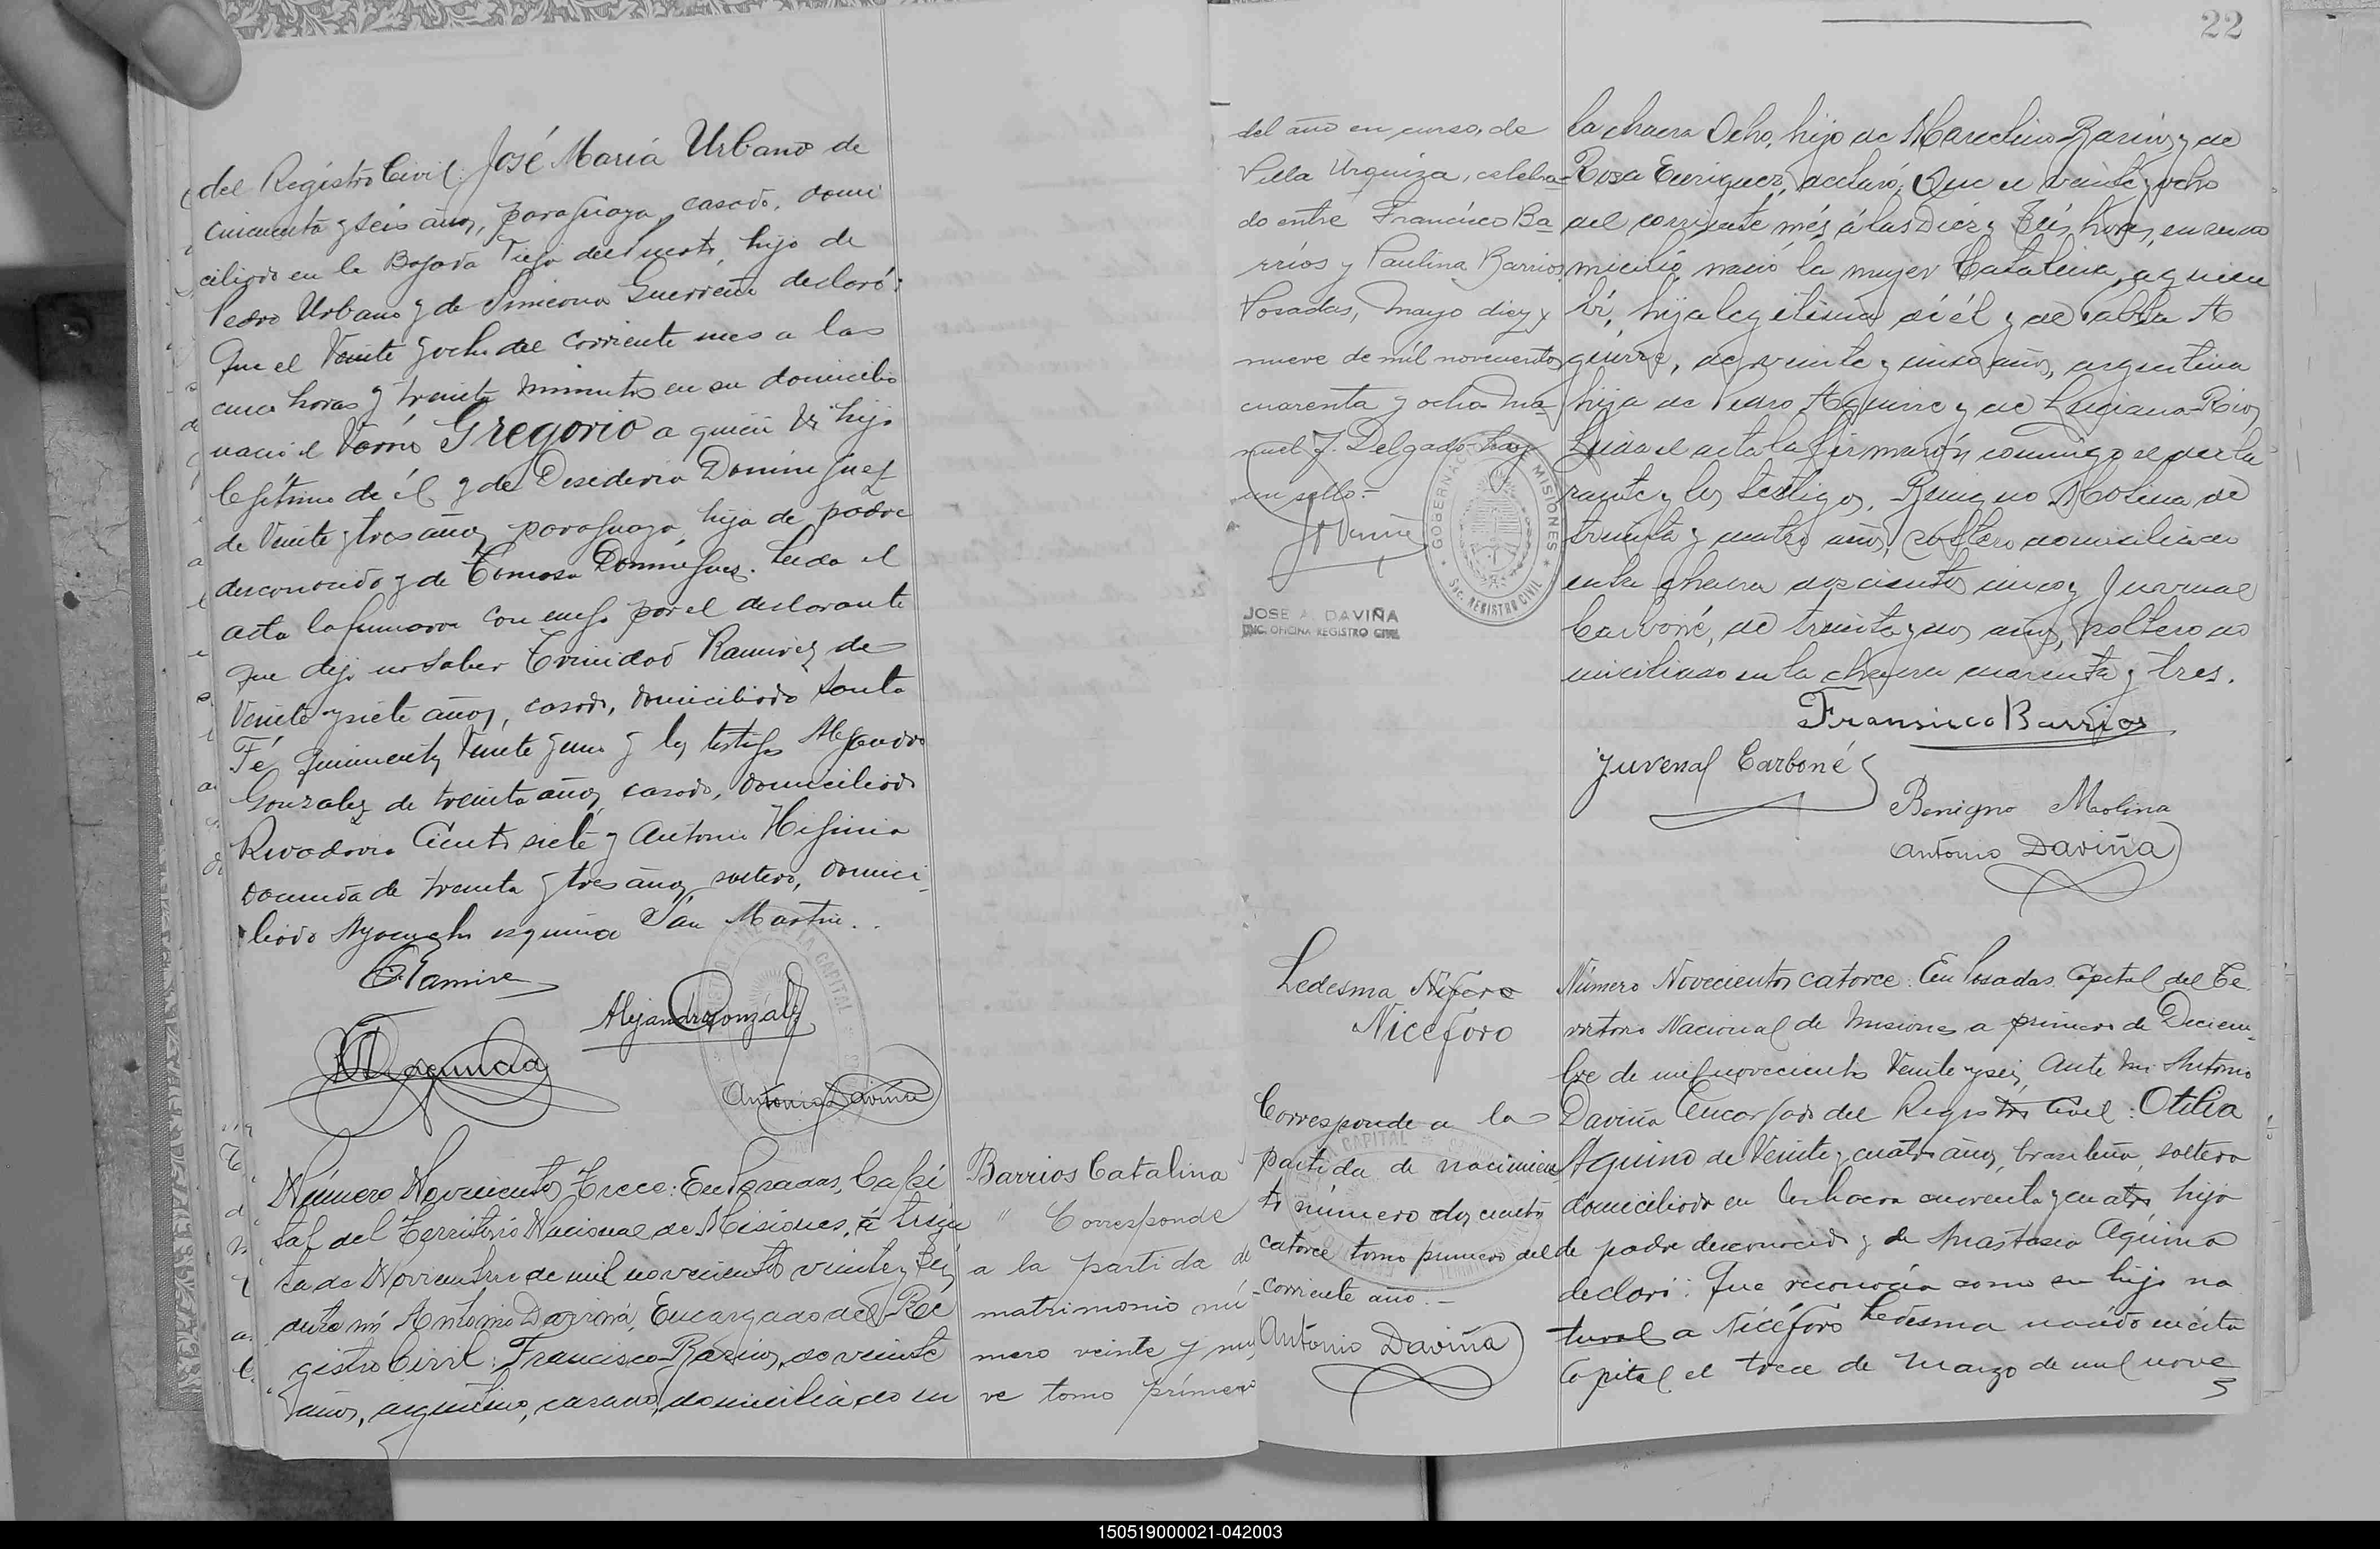 del Registro Civil: José María Urbano de
cincuenta y seis años, paraguayo, casado, domi
ciliado en la Bajada Vieja del Puerto, hijo de
Pedro Urbano y de Simeona Guerreño declaró:
Que el Veinte y ocho del corriente mes a las
once horas y treinta minutos en su domicilio
nació el Varón Gregorio a quien vi hijo
legítimo de él y de Desideria Dominguez
de Veinte y tres años, paraguaya, hija de padre
desconocido y de Tomasa Dominguez. Leida el
acta la firmaron conmigo por el declarante
que dijo no saber Trinidad Ramirez de
Veinte y siete años, casado, domiciliado Santa
Fé quinientos Veinte y uno y los testigos Alejandro
Gonzalez de treinta años, casado, domiciliado
Rivadavia Ciento siete y Antonio Higinio
de treinta y tres años, soltero, domici-
liado Ayacucho esquina San Martin..
T. Ramirez
Alejandro González
Antonio Daviña
Número Novecientos Trece: En Posadas, Capi
tal del Territorio Nacional de Misiones, á trein
ta de Noviembre de mil novecientos veinte y seis
ante mí Antonio Daviña, Encargado del Re
gistro Civil: Francisco Barrios, de veinte
años, argentino, casado, domiciliado en
Barrios Catalina
" Corresponde
a la partida de
matrimonio nú
mero veinte y nue
ve tomo primero
22
del año en curso, de
Villa Urquiza, celebra-
do entre Francisco Ba
rrios y Paulina Barrios
Posadas, Mayo diez y
nueve de mil novecientos
cuarenta y ocho Ma
nuel J. Delgado hay
un sello.-
GOBERNACION MISIONES
SEC. REGISTRO CIVIL
JOSE A. DAVIÑA
ENC. OFICINA REGISTRO CIVIL
la chacra Ocho, hijo de Marcelino Barrios y de
Rosa Enriquez, declaró: Que el veinte y ocho
del corriente més á las Diez y Seis horas, en su do
micilio nació la mujer Catalina, a quien
ví, hija legítima de él y de A
guirre, de veinte y cinco años, argentina
hija de Pedro Aguirre y de Luciana Rios
Leida el acta la firmarón conmigo el decla
rante y los testigos, Benigno Molina de
treinta y cuatro años, soltero domiciliado
en la chacra doscientos cinco y Juvenal
Carboné, de treinta y dos años, soltero do
miciliado en la chacra cuarenta y tres.
Fransisco Barrios
Juvenal Carboné
Benigno Molina
Antonio Daviña
Ledesma Niforo
Niceforo
Corresponde a la
partida de nacimien
to número dos cientos
catorce tomo primero del
corriente año.-
Antonio Daviña
Número Novecientos catorce: En Posadas Capital del Te
rritorio Nacional de Misiones a primero de Diciem-
bre de mil novecientos Veinte y seis, Ante mi Antonio
Daviña Encargado del Registro Civil: Otilia
Aquino de Veinte y cuatro años, brasileña, soltera
domiciliada en la chacra cuarenta y cuatro hija
de padre desconocido y de Anastasia Aquino
declaró: Que reconocía como su hijo na
tural a Nicéforo Ledesma nacido en esta
Capital el trece de Marzo de mil nove
150519000021-042003